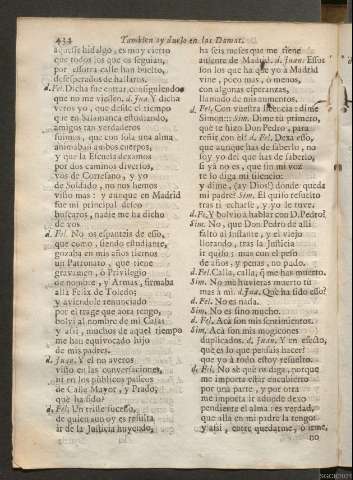 434 Tambien ay duelo en las Damas.
aquesse hidalgo, es muy cierto
que todos los que os seguian,
por essotra calle han buelto,
desesperados de hallaros.
d. Fel. Dicha fue entrar, consiguiendo
que no me viessen. d. Jua. Y dicha
veros yo, que desde el tiempo
que en Salamanca estudiando,
amigos tan verdaderos
fuimos, que con sola una alma
animaban ambos cuerpos,
y que la Escuela dexamos
por dos caminos diversos,
vos de Cortesano, y yo
de Soldado, no nos hemos
visto mas: y aunque en Madrid
fue mi principal deseo
buscaros, nadie me ha dicho
de vos.
d. Fel. No os espanteis de esso,
que como, siendo estudiante,
gozaba en mis años tiernos
un Patronato, que tiene
gravamen, ò Privilegio
de nombre, y Armas, firmaba
allà Felix de Toledo;
y aviendole renunciado
por el trage que aora tengo,
bolvì al nombre de mi Casa;
y assi, muchos de aquel tiempo
me han equivocado hijo
de mis padres.
d. Juan. Y el no averos
visto en las conversaciones,
ni en los publicos passeos
de Calle Mayor, y Prado,
què ha sido?
d. Fel. Un triste sucesso,
de quien aun oy es resulta
ir de la Justicia huyendo,
ha seis meses que me tiene
ausente de Madrid. d. Juan. Essos
son los que ha que yo à Madrid
vine, poco mas, ò menos,
con algunas esperanzas,
llamado de mis aumentos.
d. Fel. Con vuestra licencia: dime
Simon: Sim. Dime tù primero,
què te hizo Don Pedro, para
reñir con èl? d. Fel. Dexa esso,
que aunque has de saberlo, no
soy yo de el que has de saberlo,
si ya no es, que sin mi voz
te lo diga mi silencio:
y dime, (ay Dios!) donde queda
mi padre? Sim. El quiso resuelto
tras ti echarse, y yo le tuve.
d. Fe. Y bolviò a hablar con D. Pedro?
Sim. No, que Don Pedro de allì
faltò al instante, y el viejo
llorando, tras la Justicia
ir quiso; mas con el peso
de años, y penas, no pudo.
d. Fel. Calla, calla, q̃ me has muerto.
Sim. No me huvieras muerto tù
mas à mi. d. Jua. Què ha sido esso?
d. Fel. No es nada.
Sim. No es sino mucho.
d. Fel. Acà son mis sentimientos.
Sim. Acà son mis mogicones
duplicados. d. Juan. Y en efecto,
què es lo que pensais hacer?
que yo à todo estoy resuelto.
d. Fel. No sè què os diga, porque
me importa estàr encubierto
por una parte, y por otra
me importa ir adonde dexo
pendiente el alma: es verdad,
que allà en mi padre la tengo;
y assi, entre quedarme, ò irme,
no